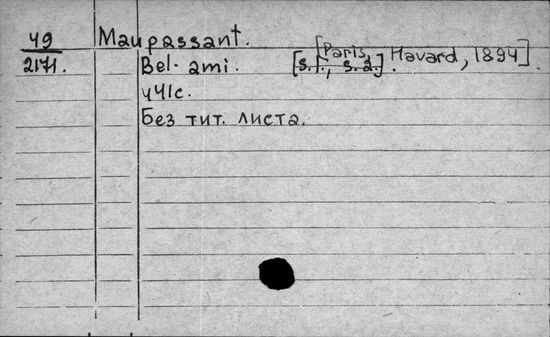 49 Maupassant.
2171. Bel-ami. [s.l., s.a.]. [Paris, Havard, 1894].
441с.
Без тит. листа.